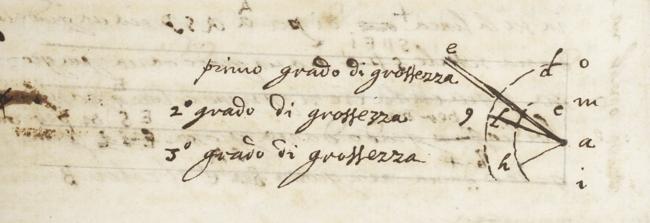 e
primo grado di grossezza
d o
m
2° grado di grossezza g f c
a
3° grado di grossezza h
i